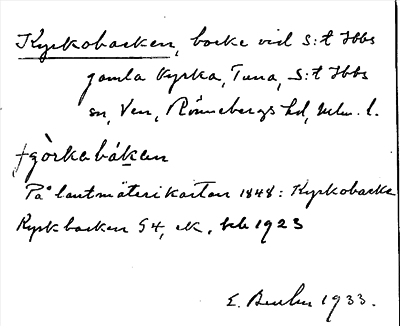 Kyrkobacken, backe vid S:t Ibbs
gamla kyrka, Tuna, S:t Ibbs
sn, Ven, Rönnebergs hd, Mlm. l.
På lantmäterikartan 1848: Kyrkobacke
Kyrkbacken G4, ek, beb 1923
E. 1933.